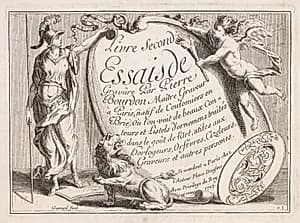 Livre Second
Essais de
Gravure Par Pierre
Bourdon Maitre Graveur
a Paris, natif de Coulomiers en
Brie, Ou l'on voit de beaux Con
tours et Listels d'ornemens traités
dans le goût de l'art, utiles aux
Horlogeurs, Orfevres, Cizleurs,
Graveurs et autres personnes.
Se vendent a Paris chez
Avec Privilege du Roy